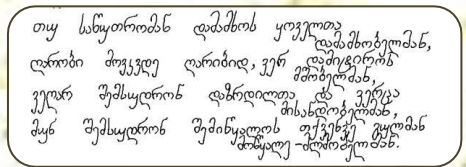 თუ საწუთრომან დამამხოს ყოველთა
დამამხობელმან,
ღარიბი მოვკვდე ღარიბად, ვერ დამიტიროს
მშობელმან,
ვეღარ შემსუდრონ დაზრდილთა და ვერცა
მისანდობელმან,
მუნ შემსუდრონ შემიწყალოს თქვენვე გულმან
მოწყალე-მლმობელმან.